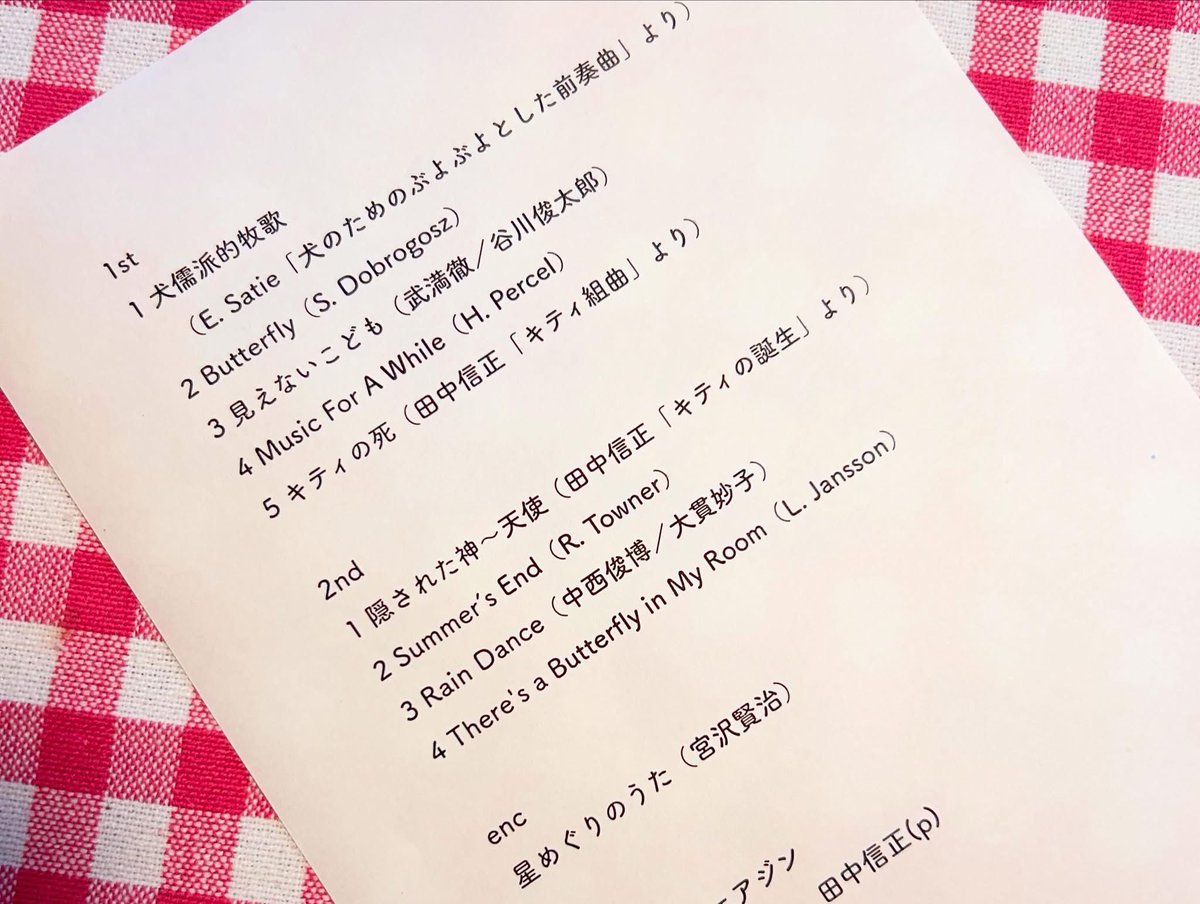 1st
1 犬儒派的牧歌
（E. Satie「犬のためのぶよぶよとした前奏曲」より）
2 Butterfly（S. Dobrogosz）
3 見えないこども（武満徹／谷川俊太郎）
4 Music For A While（H. Percel）
5 キティの死（田中信正「キティ組曲」より）
2nd
1 隠された神〜天使（田中信正「キティの誕生」より）
2 Summer's End（R. Towner）
3 Rain Dance（中西俊博／大貫妙子）
4 There's a Butterfly in My Room（L. Jansson）
enc
星めぐりのうた（宮沢賢治）
アジン
田中信正(p)